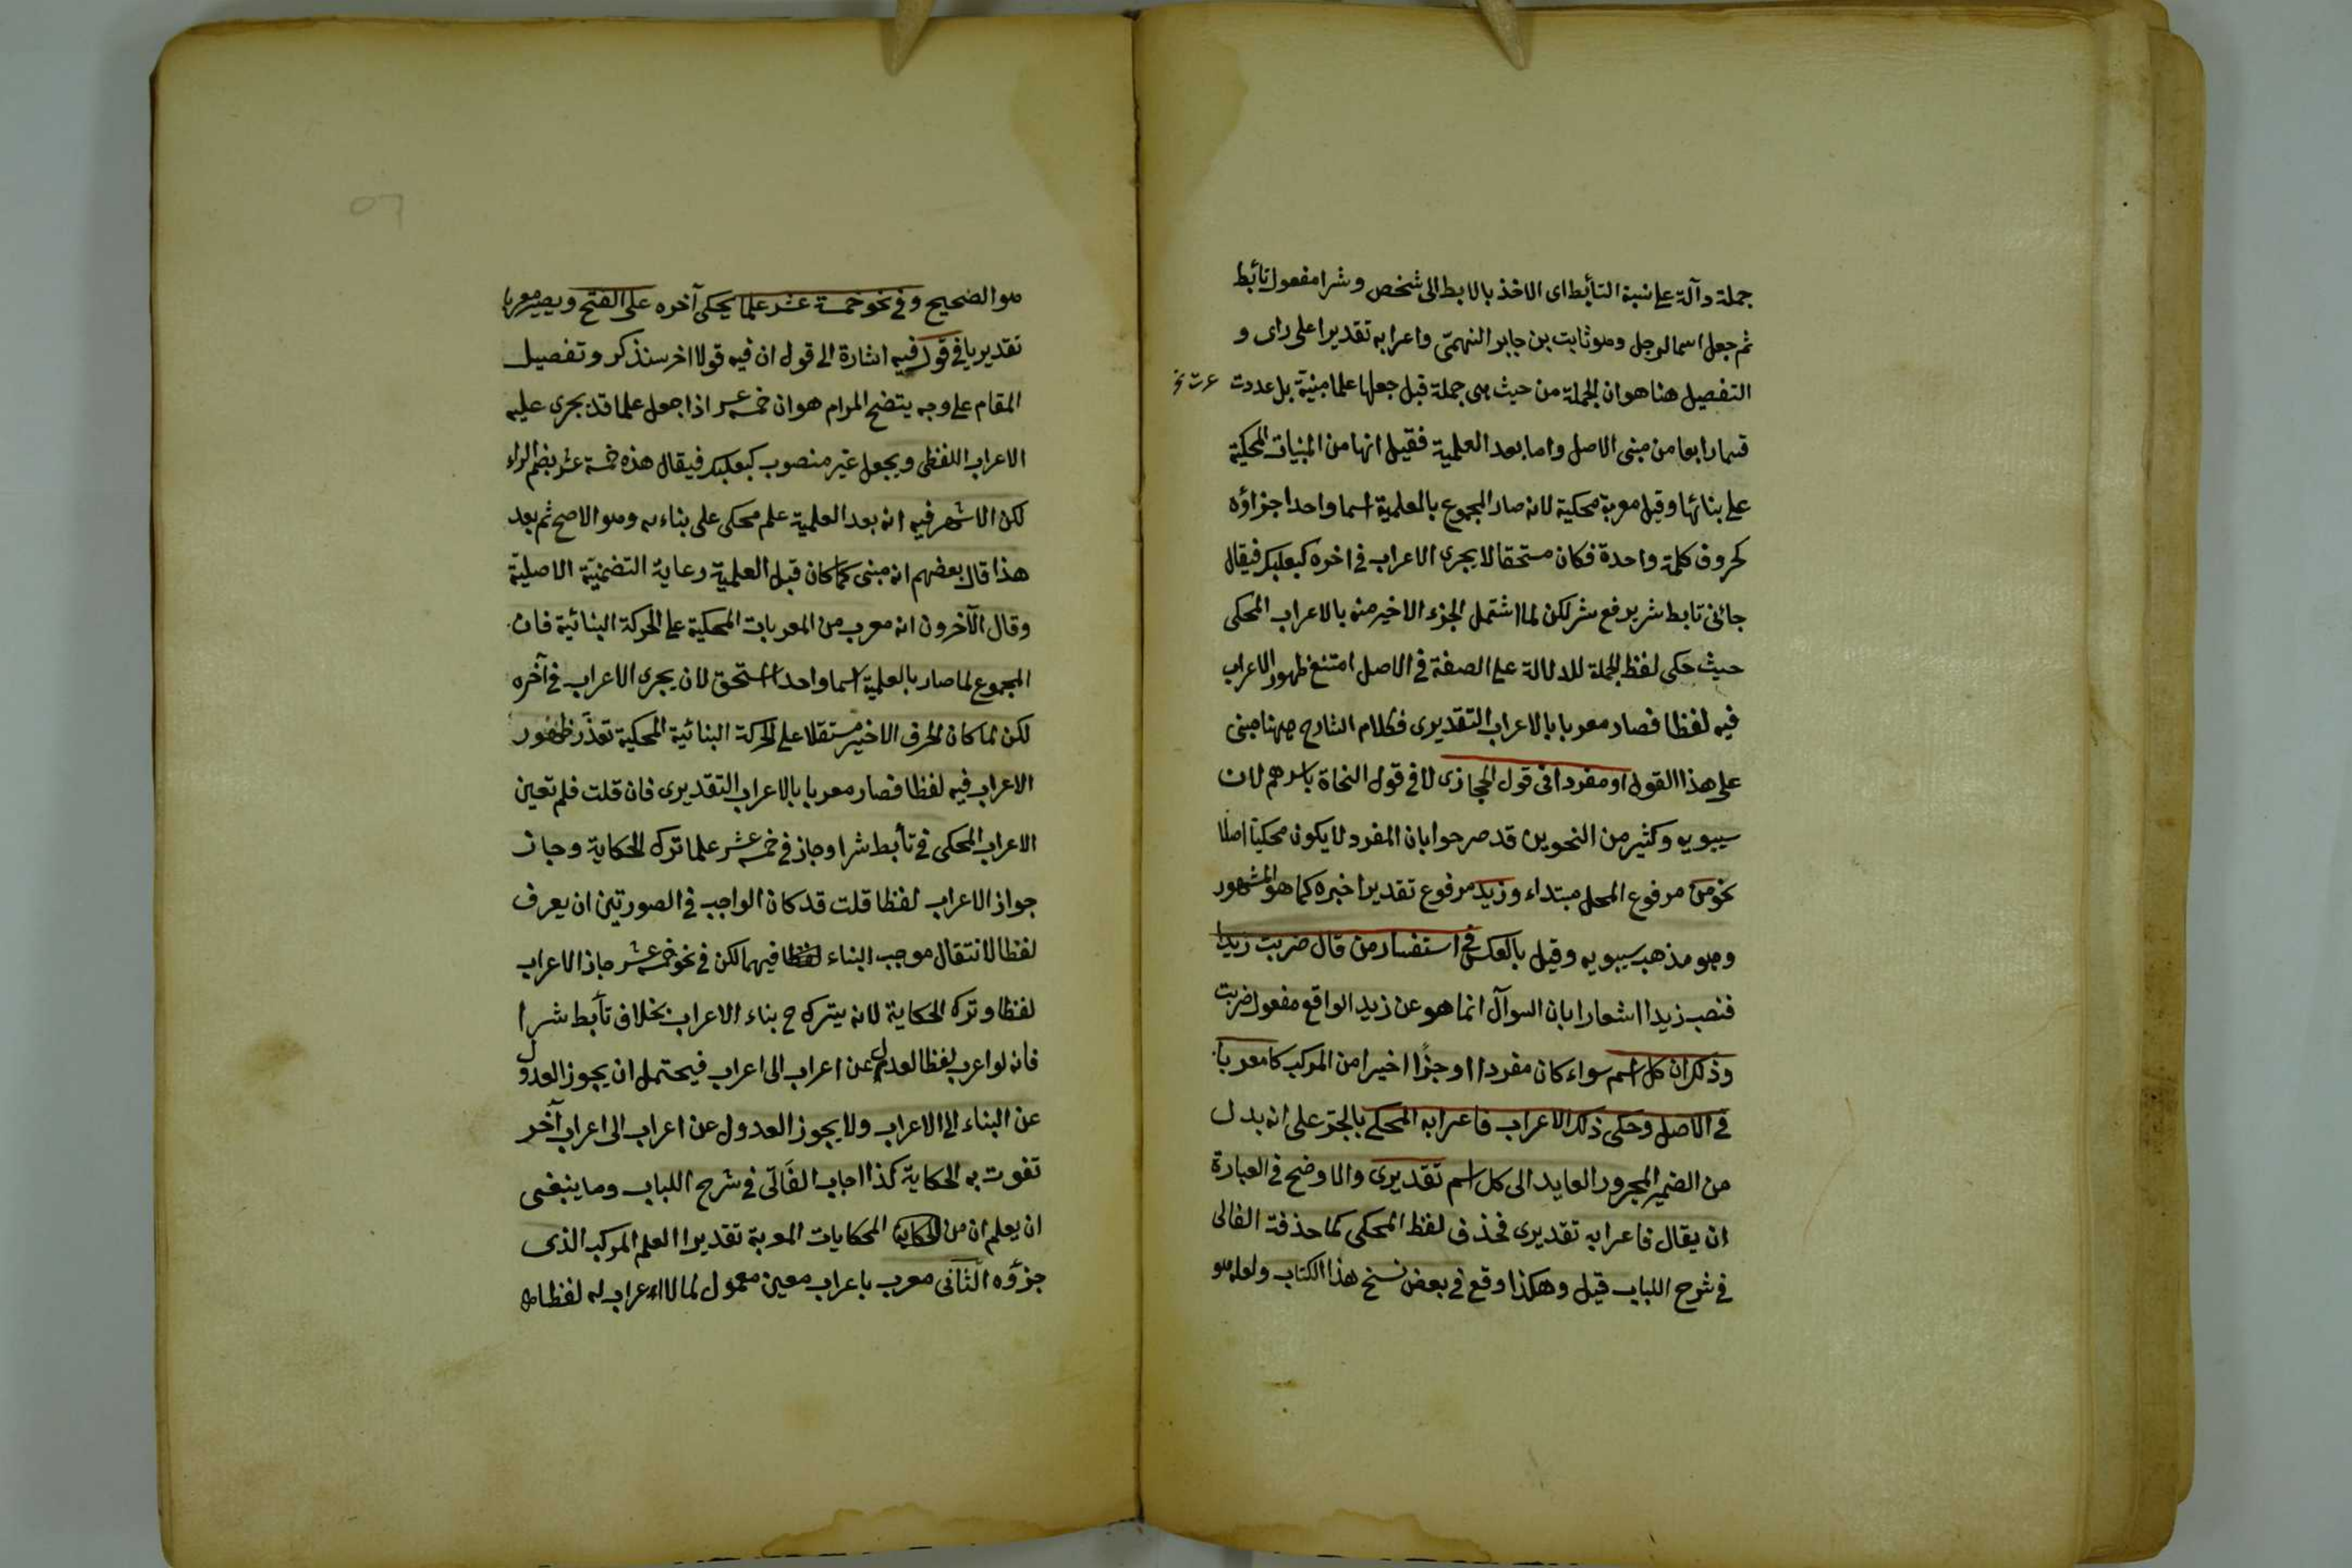 جملة دآلة على نسبة التأبط اى الاخذ بالابط الى شخص وشرا مفعول تأبط
ثم جعل اسما لرجل وهو ثابت بن جابر الفهمى واعرابه تقديرا على راى و
التفصيل هنا هو ان الجملة من حيث هى جملة قبل جعلها علما مبنية بل عددت
قسما رابعا من مبنى الاصل واما بعد العلمية فقيل انها من المبنيات المحكية
على بنائها وقيل معربة محكية لانه صار المجموع بالعلمية اسما واحدا اجزاؤه
كحروف كلمة واحدة فكان مستحقا لا يجرى الاعراب فى اخره كبعلبك فيقال
جائنى تابط شر يرفع شر لكن لما اشتمل الجزء الاخير منه بالاعراب المحكى
حيث حكى لفظ الجملة للدلالة على الصفة فى الاصل امتنع ظهور الاعراب
فيه لفظا فصار معربا بالاعراب التقديرى فكلام الشارح ههنا مبنى
على هذا القول او مفردا فى قول الحجازى لا فى قول النحاة باسرهم لان
سيبويه وكثير من النحوين قد صرحوا بان المفرد لا يكون محكيا اصلا
نحو من مرفوع المحل مبتداء وزيد مرفوع تقديرا خبره كما هو المشهور
وهو مذهب سيبويه وقيل بالعكس فى استفسار من قال ضربت زيدا
فنصب زيدا اشعارا بان السوآل انما هو عن زيد الواقع مفعول ضربت
وذلك ان كل اسم سواء كان مفردا او جزأ اخيرا من المركب كا معربا
فى الاصل وحكى ذلك الاعراب فاعرابه المحكى بالجر على انه بدل
من الضمير المجرور العايد الى كل اسم تقديرى والاوضح فى العبارة
ان يقال فاعرابه تقديرى فحذف لفظ المحكى كما حذفة الفالى
فى شرح اللباب قيل وهكذا وقع فى بعض نسخ هذا الكتاب ولعله هو
هو الصحيح وفى نحو خمسة عشر علما يحكى آخره على الفتح ويصير معربا
تقديريا فى قول فيه اشارة الى قول ان فيه قولا اخر سنذكر وتفصيل
المقام على وجه يتضح المرام هو ان خمسة عشر اذا جعل علما قد يجرى عليه
الاعراب اللفظى ويجعل غير منصوب كبعلبك فيقال هذه خمسة عشر بضم الراء
لكن الاشهر فيه انه بعد العلمية علم محكى على بناءه وهو الاصح ثم بعد
هذا قال بعضهم انه مبنى كما كان قبل العلمية رعاية التضمنية الاصلية
وقال الآخرون انه معرب من المعربات المحكية على الحركة البنائية فان
المجموع لما صار بالعلمية اسما واحدا استحق لان يجرى الاعراب فى آخره
لكن لما كان الحرف الاخير مستقلا على الحركة البنائية المحكية تعذر ظهور
الاعراب فيه لفظا فصار معربا بالاعراب التقديرى فان قلت فلم تعين
الاعراب المحكى فى تأبط شرا وجاز فى خمسة عشر علما ترك الحكاية وجاز
جواز الاعراب لفظا قلت قد كان الواجب فى الصورتين ان يعرف
لفظا لانتقال موجب البناء فيهما لكن فى نحو خمسة عشر جاز الاعراب
لفظا وترك الحكاية لانه يترك ح بناء الاعراب بخلاف تأبط شرا
فانه لو اعرب لفظا لعدل عن اعراب الى اعراب فيحتمل ان يجوز العدول
عن البناء الى الاعراب ولا يجوز العدول عن اعراب الى اعراب آخر
تفوت به الحكاية كذا اجاب الفالى فى شرح اللباب وما ينبغى
ان يعلم ان من الحكاية المحكايات المعربة تقديرا العلم المركب الذى
جزؤه الثانى معرب باعراب معين معمول لما لا اعراب له لفظا